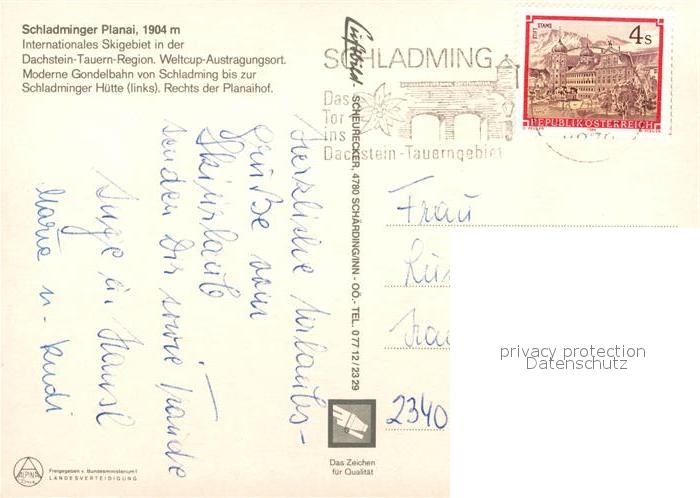 Schladminger Planai, 1904 m
Internationales Skigebiet in der
Dachstein-Tauern-Region. Weltcup-Austragungsort.
Moderne Gondelbahn von Schladming bis zur
Schladminger Hütte (links). Rechts der Planaihof.
Herzliche Urlaubs-
Grüße vom
Skiurlaub
senden Dir sowie
Inge in Hansl
Maria u. Rudi
Luftbild - SCHEURECKER, 4780 SCHÄRDING/INN - OÖ.- TEL. 0 77 12 / 23 29
SCHLADMING
Das
Tor
ins
Dachstein-Tauerngebiet
STIFT STAMS
4 S
REPUBLIK ÖSTERREICH
Frau
2340
privacy protection
Datenschutz
Das Zeichen
für Qualität
ALPINA
Freigegeben v. Bundesministerium f.
LANDESVERTEIDIGUNG